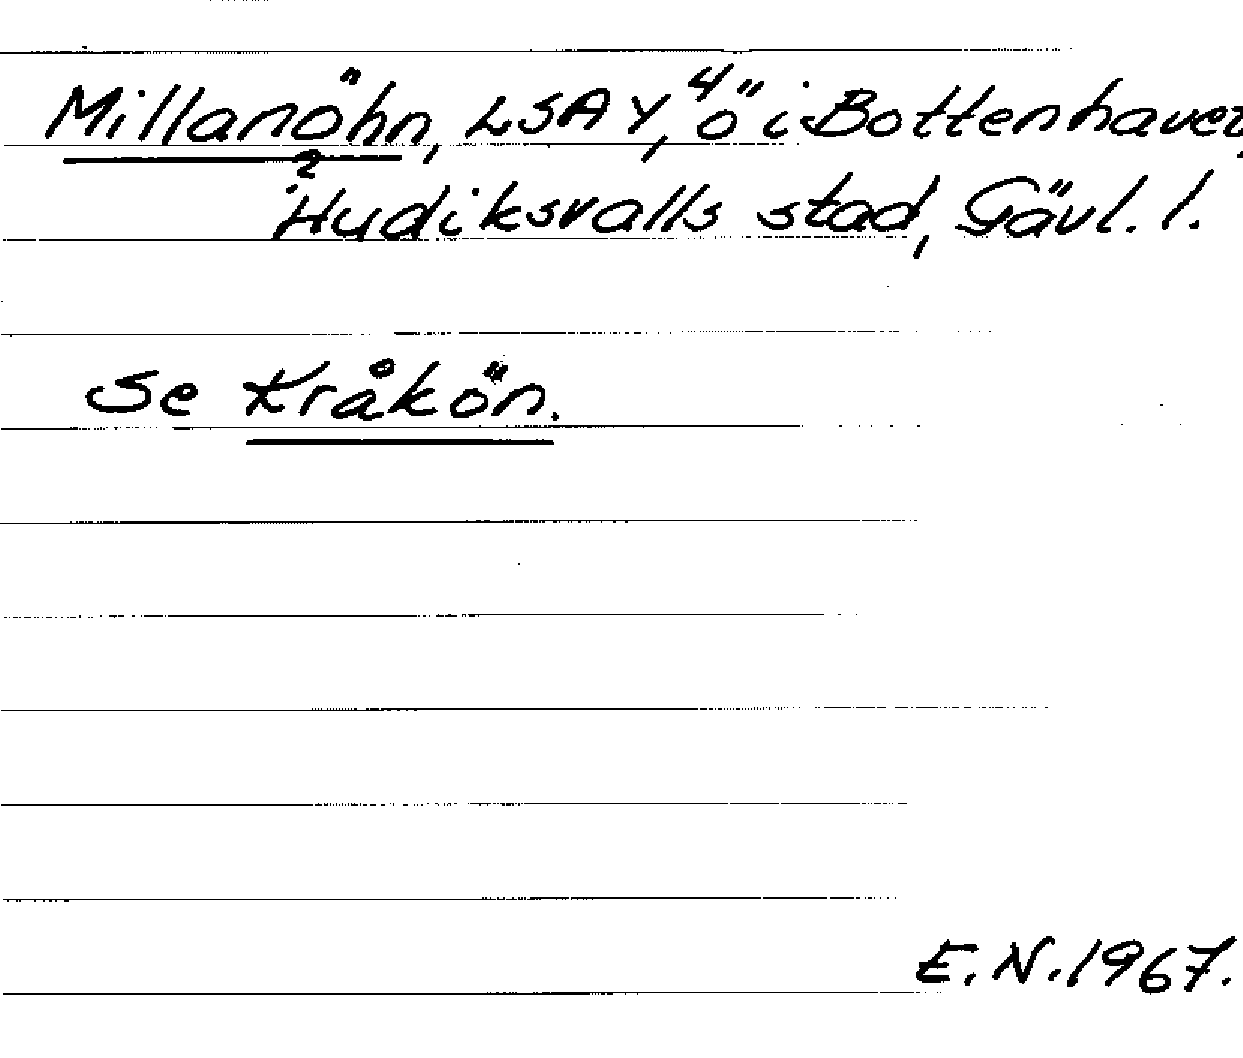 Millanöhn, LSA Y, ⁴ö i Bottenhavet,
²Hudiksvalls stad, Gävl. l.
Se Kråkön.
E.N. 1967.